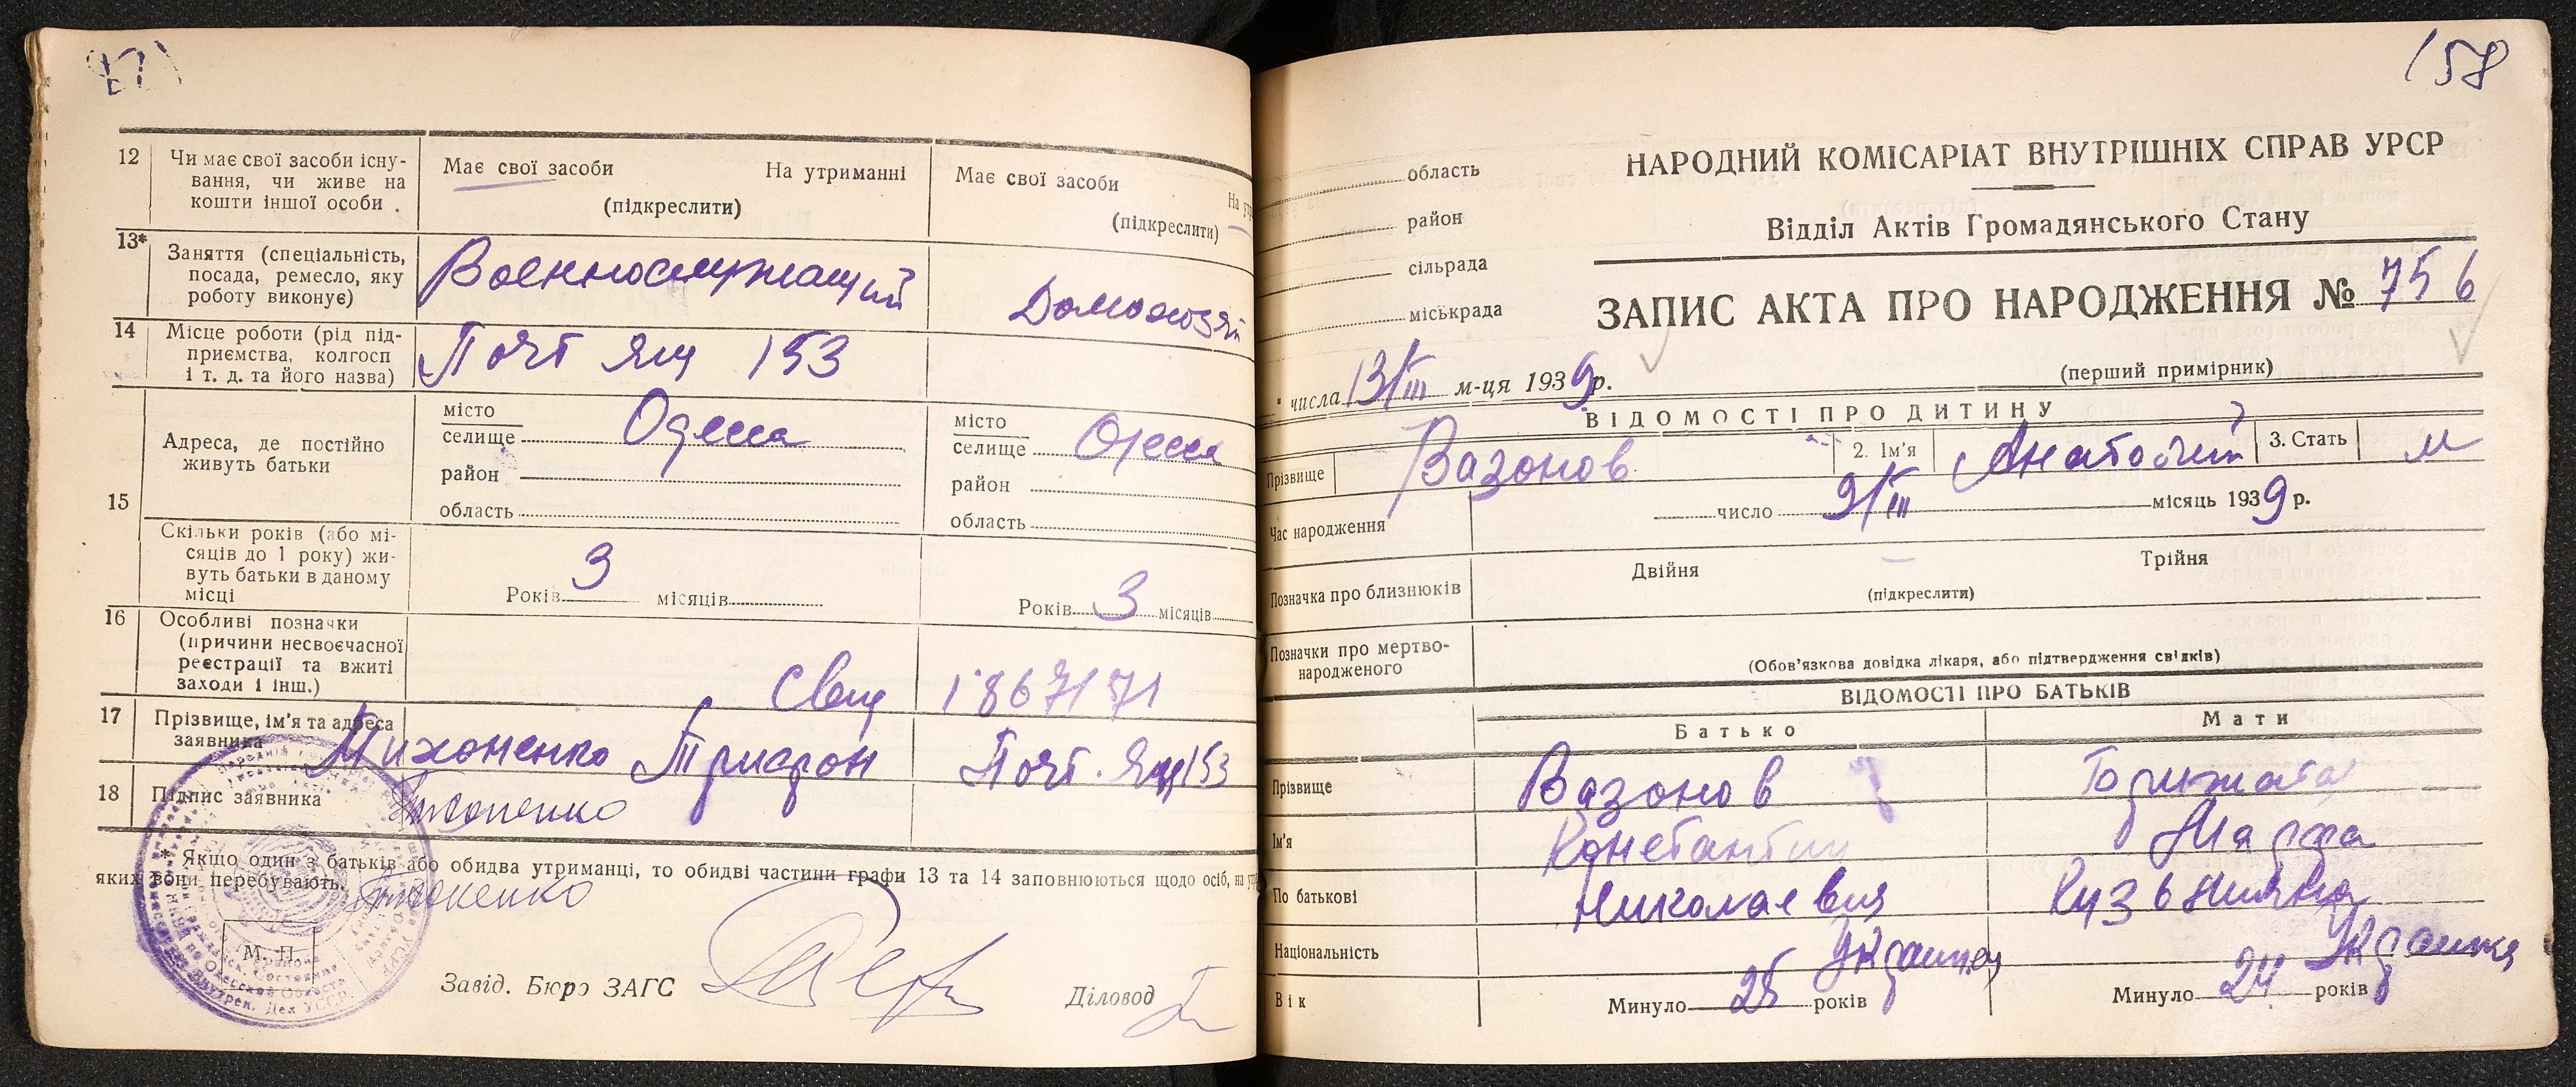 12 Чи має свої засоби існу-
вання, чи живе на
кошти іншої особи .
Має свої засоби На утриманні
(підкреслити)
Має свої засоби
(підкреслити)
13* Заняття (спеціальність,
посада, ремесло, яку
роботу виконує)
Военнослужащий
Домохозяй
14 Місце роботи (рід під-
приємства, колгосп
і т. д. та його назва)
Почт ящ 153
15 Адреса, де постійно
живуть батьки
місто
селище Одесса
район
область
місто
селище Одесса
район
область
Скільки років (або мі-
сяців до 1 року) жи-
вуть батьки в даному
місці
Років 3 місяців
Років 3 місяців
16 Особливі позначки
(причини несвоєчасної
реєстрації та вжиті
заходи і інш.)
17 Прізвище, ім'я та адреса
заявника
Трифон Почт. Ящ 153
18 Підпис заявника
* Якщо один з батьків або обидва утриманці, то обидві частини графи 13 та 14 заповнюються щодо осіб, на
яких вони перебувають.
М. П.
Завід. Бюро ЗАГС
Діловод
158
НАРОДНИЙ КОМІСАРІАТ ВНУТРІШНІХ СПРАВ УРСР
Відділ Актів Громадянського Стану
область
район
сільрада
міськрада
ЗАПИС АКТА ПРО НАРОДЖЕННЯ № 756
(перший примірник)
" числа 13/III м-ця 1939 р.
ВІДОМОСТІ ПРО ДИТИНУ
Прізвище Вазонов 2. Ім'я Анатолий 3. Стать м
Час народження число 9/III місяць 1939 р.
Позначка про близнюків Двійня Трійня
(підкреслити)
Позначки про мертво-
народженого
(Обов'язкова довідка лікаря, або підтвердження свідків)
ВІДОМОСТІ ПРО БАТЬКІВ
Батько Мати
Прізвище Вазонов
Ім'я Константин Марфа
По батькові Николаевич
Національність Украинец Украинка
Вік Минуло 25 років Минуло 24 років